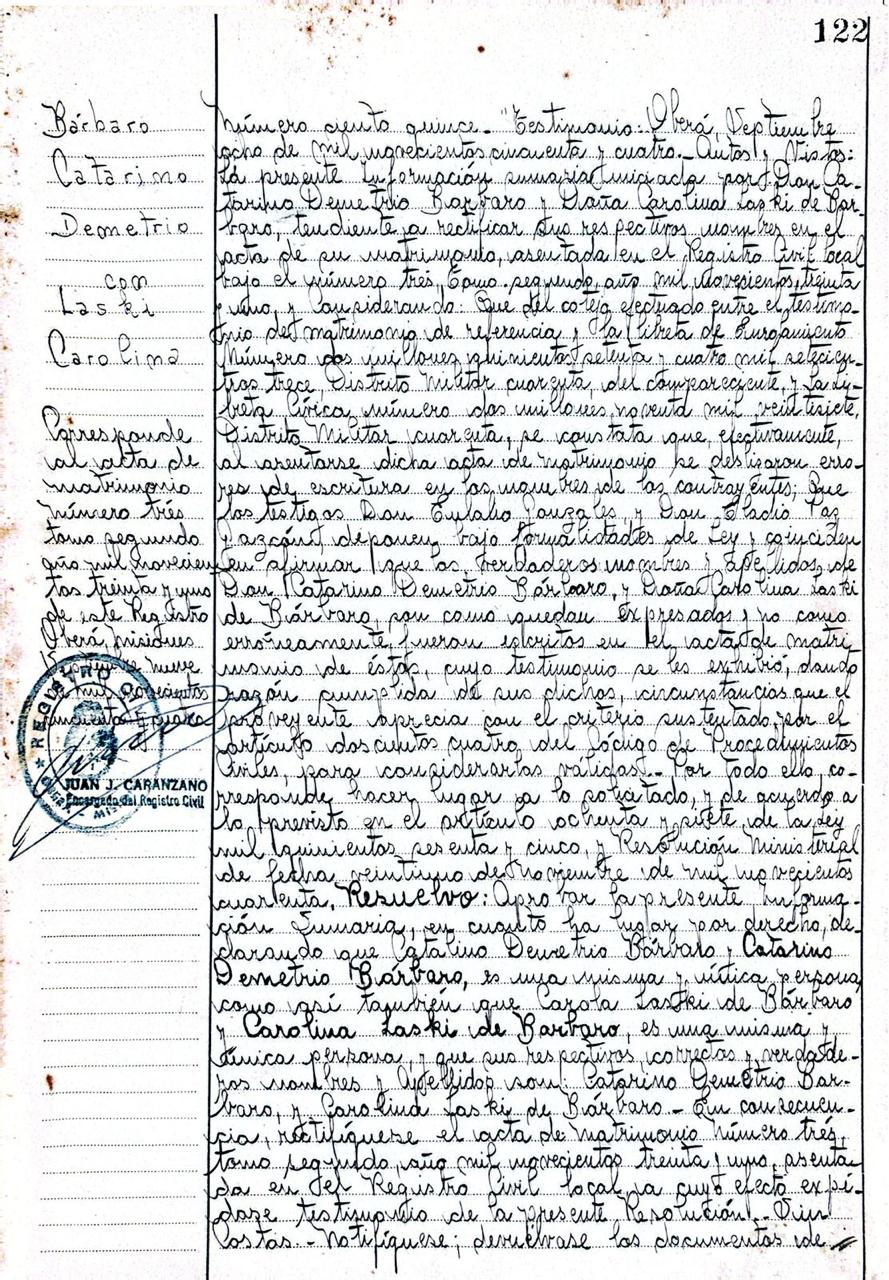 122
Bárbaro
Catarino
Demetrio
con
Laski
Carolina
Corresponde
al acta de
matrimonio
número trés
tomo segundo
año mil novecien
tos treinta y uno
de este Registro
Oberá, misiones
nueve
de mil novecientos
cincuenta y cuatro
REGISTRO
JUAN J. CARANZANO
Encargado del Registro Civil
Número ciento quince.- "Testimonio: Oberá, Septiembre
ocho de mil novecientos cincuenta y cuatro.- Autos y Vistos:
La presente información sumaria iniciada por Don Ca-
tarino Demetrio Bárbaro y Doña Carolina Laski de Bár-
baro, tendiente a rectificar sus respectivos nombres en el
acta de su matrimonio, asentada en el Registro Civil local
bajo el número trés, tomo segundo, año mil novecientos treinta
y uno, y Considerando: Que del cotejo efectuado entre el testimo-
nio de matrimonio de referencia y la libreta de Enrolamiento
Número dos millones quinientos setenta y cuatro mil setecien-
tos trece, Distrito Militar cuarenta, del compareciente, y la Li-
breta Cívica número dos millones noventa mil veintisiete,
Distrito Militar cuarenta, se constata que, efectivamente,
al asentarse dicha acta de matrimonio se deslizaron erro-
res de escritura en los nombres de los contrayentes; Que
los testigos Don Eulalio Gonzales y Don Eladio Paz
deponen bajo formalidades de Ley y coinciden
en afirmar que los verdaderos nombres y apellidos de
Don Catarino Demetrio Bárbaro, y Doña Carolina Laski
de Bárbaro, son como quedan expresados y no como
erróneamente fueran escritos en el acta de matri
monio de éstos, cuyo testimonio se les exhibió, dando
razón cumplida de sus dichos, circunstancias que el
proveyente aprecia con el criterio sustentado por el
artículo doscientos cuatro del Código de Procedimientos
Civiles, para considerarlas válidas.- Por todo ello, co-
rresponde hacer lugar a lo solicitado, y de acuerdo a
lo previsto en el artículo ochenta y siete de la Ley
mil quinientos sesenta y cinco, y Resolución Ministerial
de fecha veintiuno de Noviembre de mil novecientos
cuarenta. Resuelvo: Aprobar la presente informa-
ción Sumaria, en cuanto ha lugar por derecho, de-
clarando que Catalino Demetrio Bárbaro y Catarino
Demetrio Bárbaro, es una misma y única persona,
como así también que Carola Laski de Bárbaro
y Carolina Laski de Barbaro, es una misma y
única persona, y que sus respectivos correctos y verdade-
ros nombres y Apellidos son: Catarino Demetrio Bár-
baro, y Carolina Laski de Bárbaro.- En consecuen-
cia, rectifíquese el acta de matrimonio número trés,
tomo segundo, año mil novecientos treinta y uno, asenta-
da en el Registro Civil local, a cuyo efecto expí-
dase testimonio de la presente Resolución.- Sin
Costas.- Notifíquese; devuélvase los documentos de